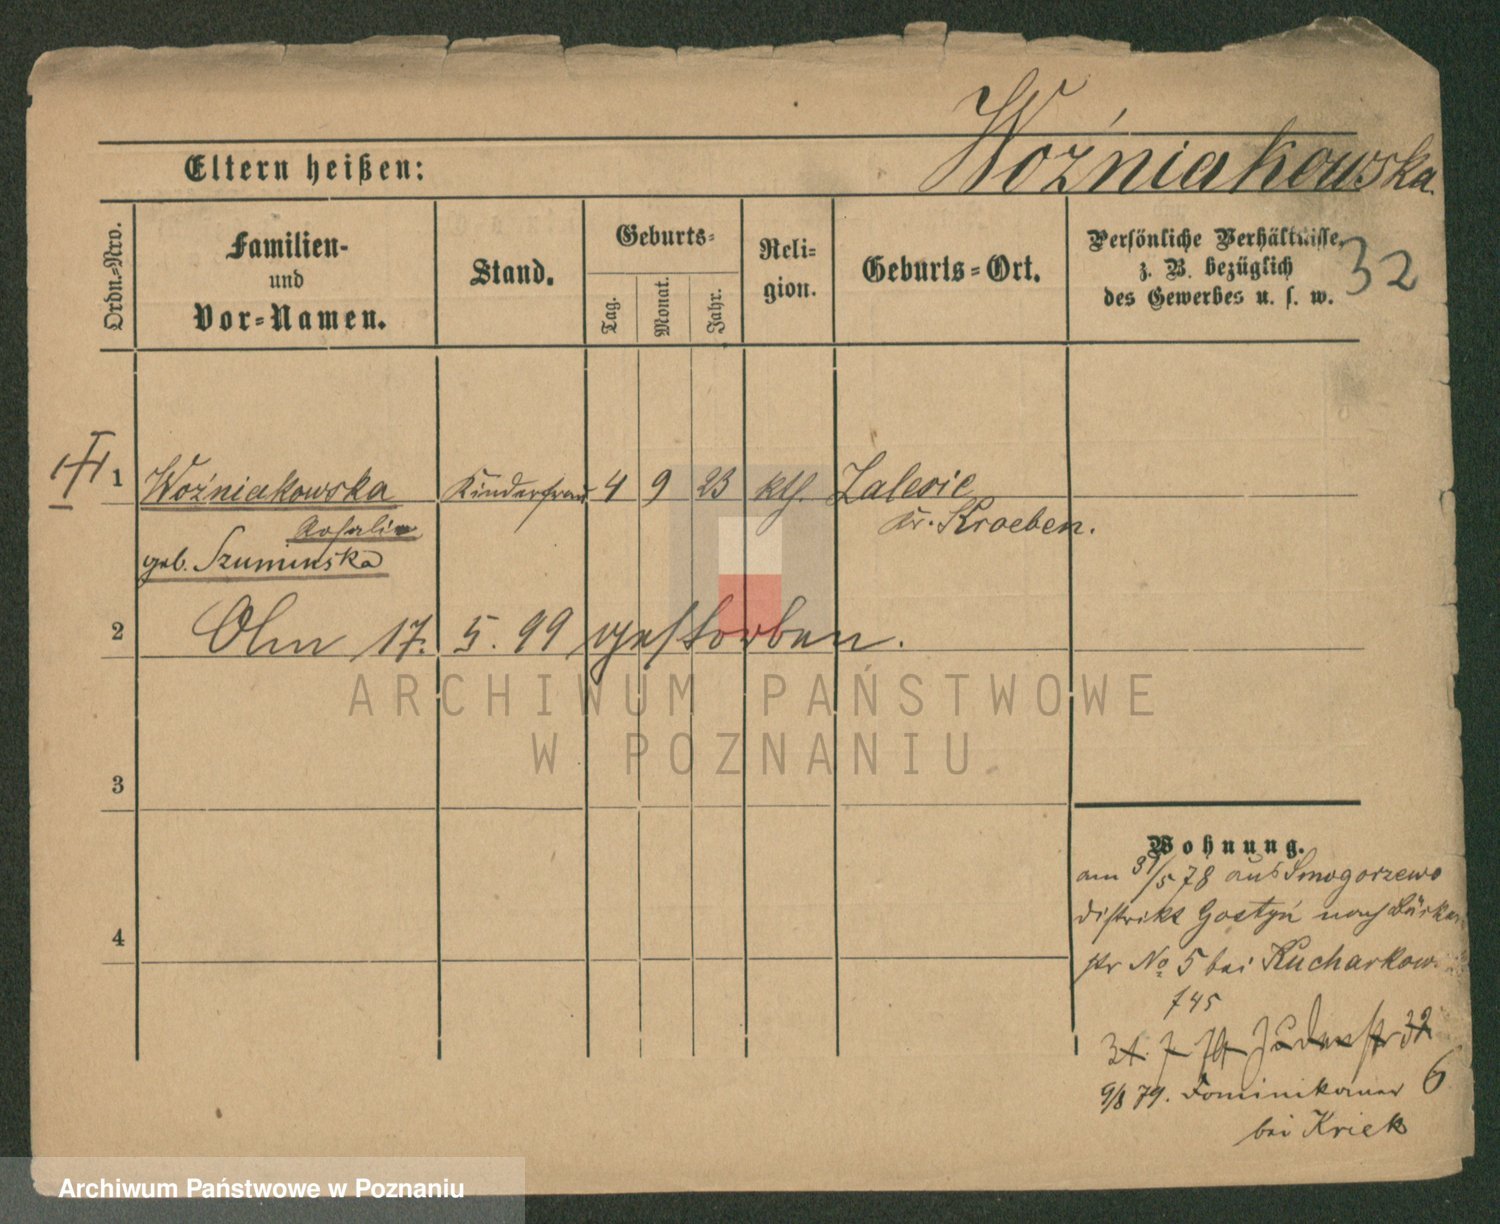 Woźniakowska
Eltern heißen:
32
Ordn.-Nro.
Familien-
und
Vor-Namen.
Stand.
Geburts-
Tag.
Monat.
Jahr.
Reli-
gion.
Geburts-Ort.
Persönliche Verhältnisse,
z. B. bezüglich
des Gewerbes u. s. w.
1 Woźniakowska Kinderfrau 4 9 23 kth. Zalesie
Rosalie Kr. Kroeben.
geb. Szumińska
2 17. 5. 99 gestorben.
ARCHIWUM PAŃSTWOWE
W POZNANIU
3
Wohnung.
am 31/5 78 aus Smogorzewo
distrikt Gostyń nach
4
str No 5 bei Kucharkow
745
31. 7 79 Judenstr 32
9/8 79. Dominikaner 6
bei Kriek
Archiwum Państwowe w Poznaniu